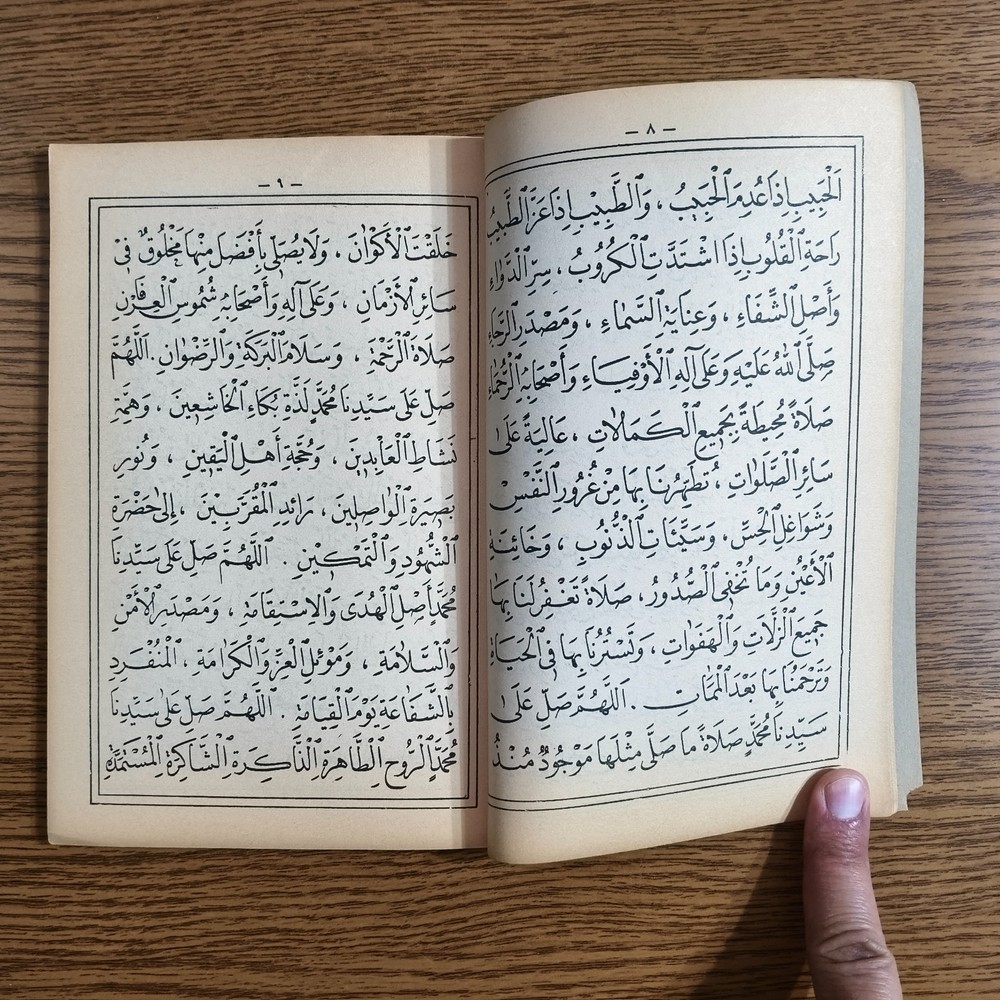 – ٨ –
الْحَبِيبِ إِذَا عُدِمَ الْحَبِيبُ ، وَالطَّبِيبِ إِذَا عَزَّ الطَّبِيبُ
رَاحَةِ الْقُلُوبِ إِذَا اشْتَدَّتِ الْكُرُوبُ ، سِرِّ الدَّوَاءِ
وَأَصْلِ الشِّفَاءِ ، وَعِنَايَةِ السَّمَاءِ ، وَمَصْدَرِ الرَّجَاءِ
صَلَّى اللهُ عَلَيْهِ وَعَلَى آلِهِ الْأَوْفِيَاءِ وَأَصْحَابِهِ الرُّحَمَاءِ
صَلَاةً مُحِيطَةً بِجَمِيعِ الْكَمَالَاتِ ، عَالِيَةً عَلَى
سَائِرِ الصَّلَوَاتِ ، تُطَهِّرُنَا بِهَا مِنْ غُرُورِ النَّفْسِ
وَشَوَاغِلِ الْحِسِّ، وَسَيِّئَاتِ الذُّنُوبِ ، وَخَائِنَةِ
الْأَعْيُنِ وَمَا تُخْفِى الصُّدُورُ، صَلَاةً تَغْفِرُ لَنَا بِهَا
جَمِيعَ الزَّلَّاتِ وَالْهَفَوَاتِ ، وَتَسْتُرُنَا بِهَا فِى الْحَيَاةِ
وَتَرْحَمُنَا بِهَا بَعْدَ الْمَمَاتِ . اَللَّهُمَّ صَلِّ عَلَى
سَيِّدِنَا مُحَمَّدٍ صَلَاةً مَا صَلَّى مِثْلَهَا مَوْجُودٌ مُنْذُ
– ٩ –
خَلَقْتَ الْأَكْوَانَ ، وَلَا يُصَلِّى بِأَفْضَلَ مِنْهَا مَخْلُوقٌ فِى
سَائِرِ الْأَزْمَانِ ، وَعَلَى آلِهِ وَأَصْحَابِهِ شُمُوسِ الْعِرْفَانِ
صَلَاةَ الرَّحْمَةِ ، وَسَلَامَ الْبَرَكَةِ وَالرِّضْوَانِ . اَللَّهُمَّ
صَلِّ عَلَى سَيِّدِنَا مُحَمَّدٍ لَذَّةِ بُكَاءِ الْخَاشِعِينَ ، وَهِمَّةِ
نَشَاطِ الْعَابِدِينَ ، وَحُجَّةِ أَهْلِ الْيَقِينِ ، وَنُورِ
بَصِيرَةِ الْوَاصِلِينَ ، رَائِدِ الْمُقَرَّبِينَ ، إِلَى حَضْرَةِ
الشُّهُودِ وَالتَّمْكِينِ . اَللَّهُمَّ صَلِّ عَلَى سَيِّدِنَا
مُحَمَّدٍ أَصْلِ الْهُدَى وَالِاسْتِقَامَةِ ، وَمَصْدَرِ الْأَمْنِ
وَالسَّلَامَةِ ، وَمَوْئِلِ الْعِزِّ وَالْكَرَامَةِ ، الْمُنْفَرِدِ
بِالشَّفَاعَةِ يَوْمَ الْقِيَامَةِ . اَللَّهُمَّ صَلِّ عَلَى سَيِّدِنَا
مُحَمَّدٍ الرُّوحِ الطَّاهِرَةِ الذَّاكِرَةِ الشَّاكِرَةِ الْمُسْتَمَدَّةِ